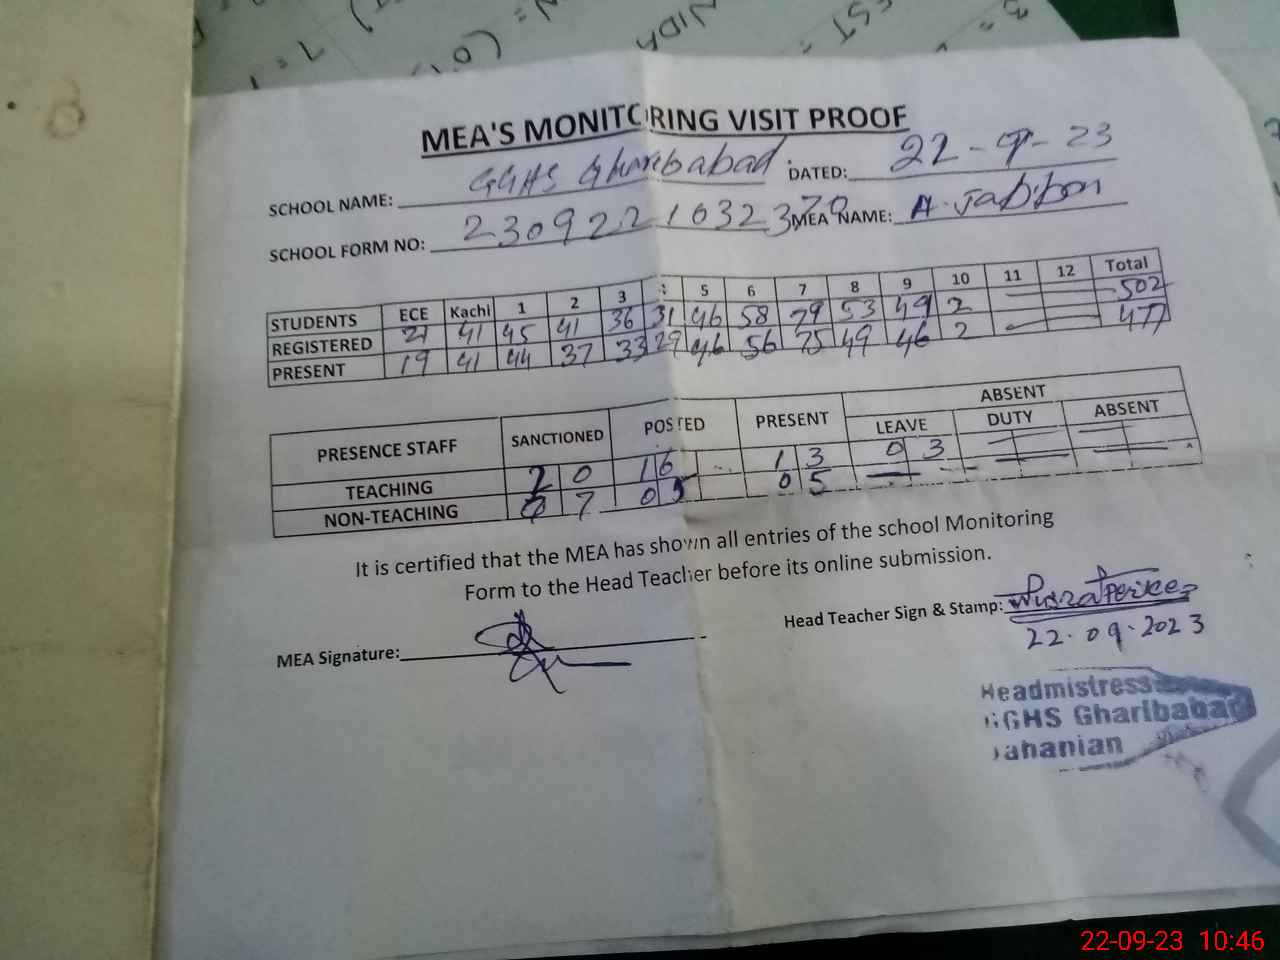 MEA'S MONITORING VISIT PROOF
SCHOOL NAME: GGHS Gharibabad DATED: 22-9-23
SCHOOL FORM NO: 23092210323 70 MEA NAME: A. Jabbar
STUDENTS ECE Kachi 1 2 3 4 5 6 7 8 9 10 11 12 Total
REGISTERED 21 41 45 41 36 31 46 58 79 53 49 2 502
PRESENT 19 41 44 37 33 29 46 56 75 49 46 2 477
ABSENT
PRESENCE STAFF SANCTIONED POSTED PRESENT LEAVE DUTY ABSENT
TEACHING 2 0 1 6 1 3 0 3
NON-TEACHING 0 7 0 5 0 5
It is certified that the MEA has shown all entries of the school Monitoring
Form to the Head Teacher before its online submission.
MEA Signature: Head Teacher Sign & Stamp:
22.09.2023
Headmistress
GGHS Gharibabad
Jahanian
22-09-23 10:46